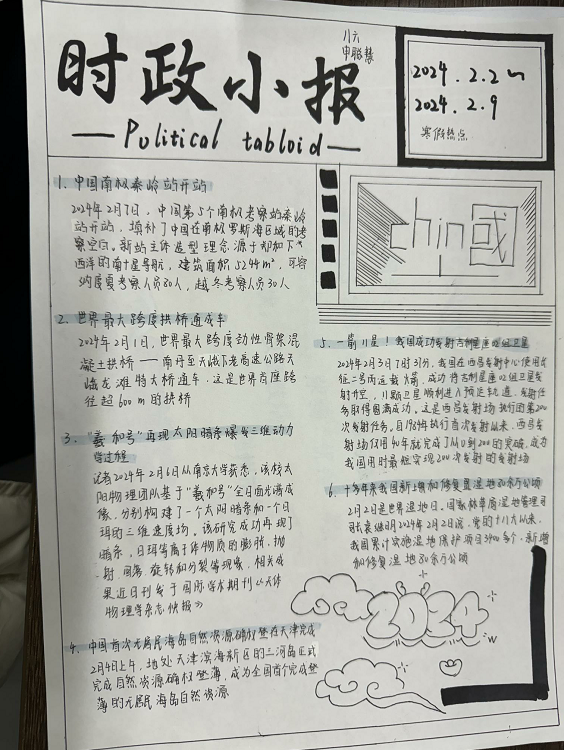 时政小报
八六
申聪慧
— Political tabloid —
2024.2.2~
2024.2.9
寒假热点
1. 中国南极秦岭站开站
2024年2月7日，中国第5个南极考察站秦岭
站开站，填补了中国在南极罗斯海区域的考
察空白。新站主体造型理念源于郑和下
西洋的南十星导航，建筑面积5244m²，可容
纳度夏考察人员80人，越冬考察人员30人
chin國
2. 世界最大跨度拱桥通成车
2024年2月1日，世界最大跨度劲性骨架混
凝土拱桥——南丹至天峨下老高速公路天
峨龙滩特大桥通车，这是世界首座跨
径超600m的拱桥
3. "羲和号"再现太阳暗条爆发三维动力
学过程
记者2024年2月6日从南京大学获悉，该校太
阳物理团队基于"羲和号"全日面光谱成
像，分别构建了一个太阳暗条和一个日
珥的三维速度场。该研究成功再现了
暗条、日珥等离子体物质的膨胀、抛
射、回落、旋转和分裂等现象，相关成
果近日刊发于国际学术期刊《天体
物理学杂志快报》
4. 中国首次无居民海岛自然资源确权登在天津完成
2月4日上午，地处天津滨海新区的三河岛正式
完成自然资源确权登簿，成为全国首个完成登
簿的无居民海岛自然资源
5. 一箭11星！我国成功发射吉利星座02组卫星
2024年2月3日7时37分，我国在西昌发射中心使用长
征二号丙运载火箭，成功将吉利星座02组卫星发
射升空，11颗卫星顺利进入预定轨道，发射任
务取得圆满成功。这是西昌发射场执行的第200
次发射任务。自1984执行首次发射以来，西昌发
射场仅用40年就完成了从0到200的突破，成为
我国用时最短实现200次发射的发射场
6. 十多年来我国新上增和修复湿地80余万公顷
2月2日是世界湿地日。国家林草局湿地管理司
2024年2月2日说，党的十八大以来，
我国累计实施湿地保护项目3400多个，新增
和修复湿地80余万公顷
2024